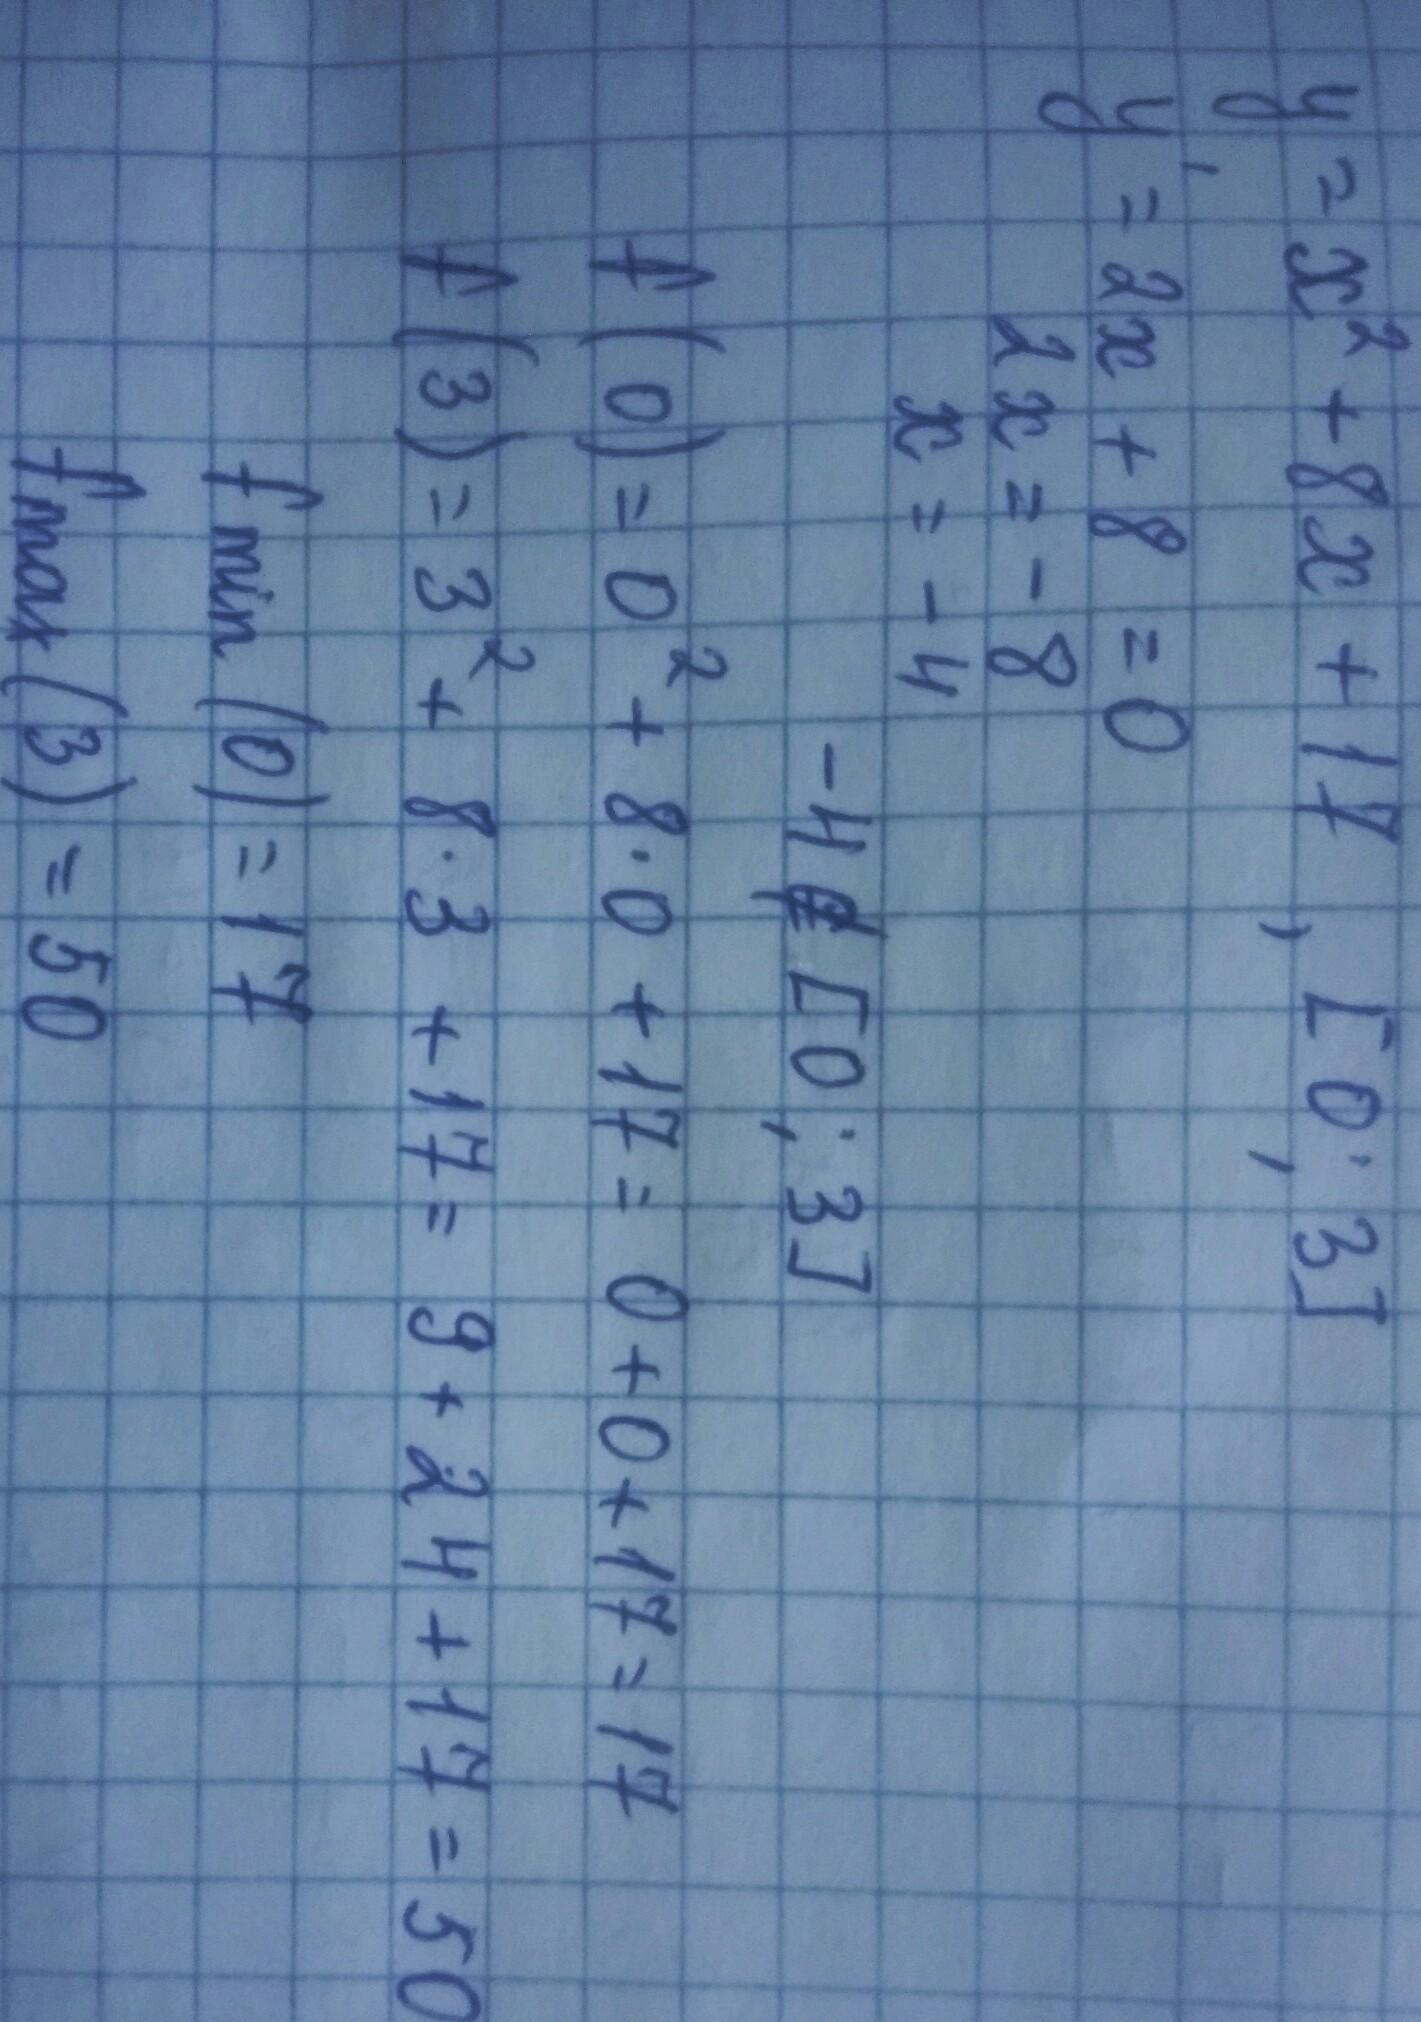 y = x² + 8x + 17, [0; 3]
y' = 2x + 8 = 0
2x = -8
x = -4
-4 ∉ [0; 3]
f(0) = 0² + 8·0 + 17 = 0 + 0 + 17 = 17
f(3) = 3² + 8·3 + 17 = 9 + 24 + 17 = 50
f min (0) = 17
f max (3) = 50